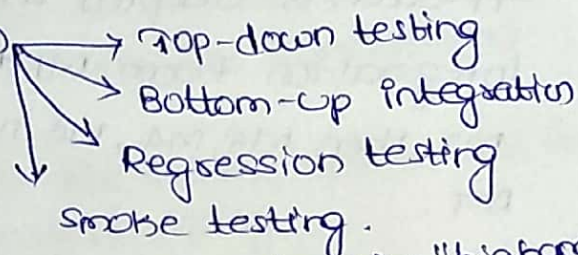 Top-down testing
Bottom-up integration
Regression testing
smoke testing.